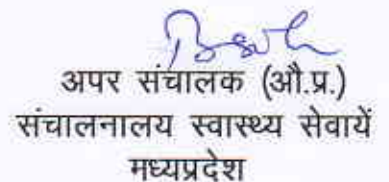 अपर संचालक (औ.प्र.)
संचालनालय स्वास्थ्य सेवायें
मध्यप्रदेश